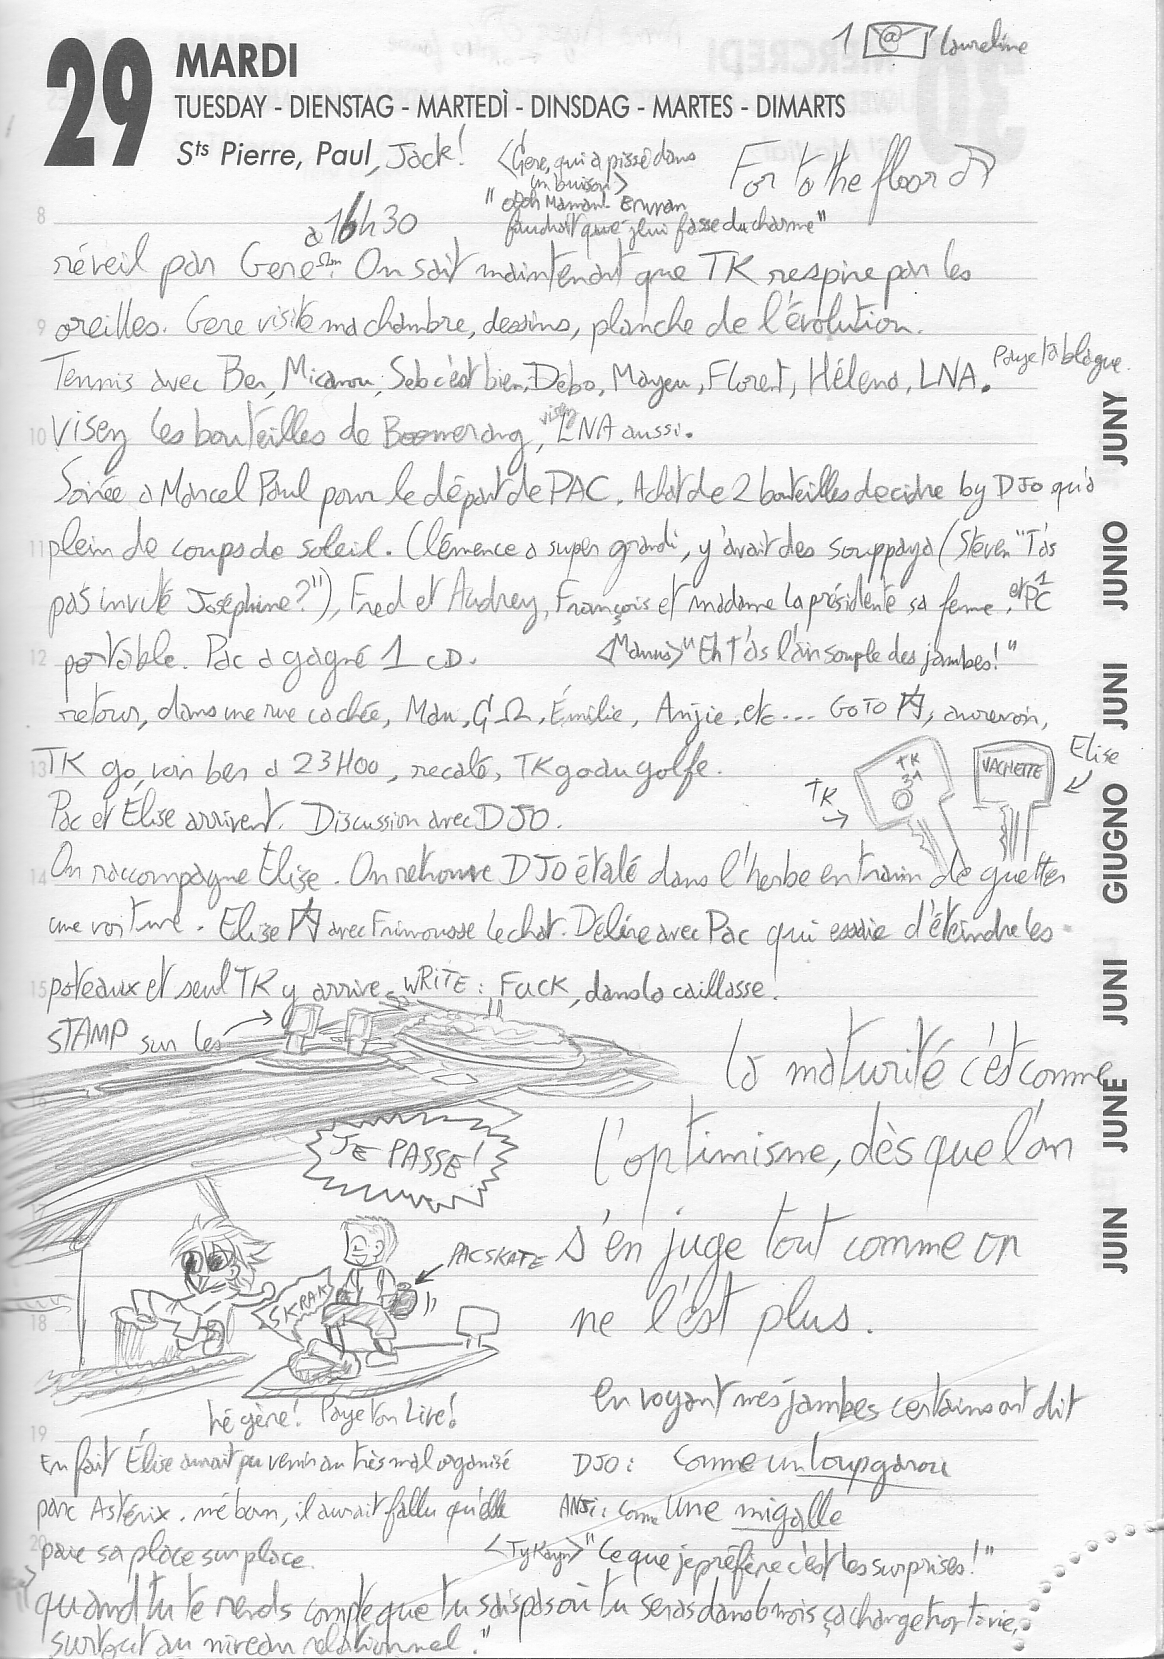 1 @ Laureline
29 MARDI
TUESDAY - DIENSTAG - MARTEDÌ - DINSDAG - MARTES - DIMARTS
Sts Pierre, Paul, Jack!
<Gere, qui a pissé dans
un buisson>
For to the floor
"oooh Maman!
faudrait que j'lui fasse du charme"
8
à 16h30
réveil par Gere. On sait maintenant que TK respire par les
9 oreilles. Gere visite ma chambre, dessins, planche de l'évolution.
Tennis avec Ben, Micarou, Seb c'est bien, Debo, Mayeu, Florent, Hélèno, LNA. Paye ta blague.
10 visey les bouteilles de Boomerang, visey LNA aussi.
Soirée a Marcel Paul pour le départ de PAC. Achat de 2 bouteilles de cidre by DJO qu'a
11 plein de coups de soleil. Clémence a super grandi, y'avait des souppaya (Steven "T'as
pas invité Joséphine?"), Fred et Audrey, François et madame la présidente sa feme, et 1 PC
12 portable. Pac a gagné 1 CD. <Manu> "Eh t'as l'air souple des jambes!"
retour, dans une rue cachée, Man, GΩ, Émilie, Anjie, etc... GOTO, aurevoir,
13 TK go, voir ben a 23H00, recalé, TK go au golfe.
TK → TK 31 VACHETTE Elise
Pac et Élise arrivent. Discussion avec DJO.
14 On raccompagne Elise. On retrouve DJO étalé dans l'herbe en train de guetter
une voiture. Elise avec Frimousse le chat. Délire avec Pac qui essaie d'éteindre les
15 poteaux et seul TK y arrive. WRITE: FUCK, dans la caillasse.
STAMP sur les
16
la maturité c'est comme
JE PASSE!
l'optimisme, dès que l'on
s'en juge tout comme on
PAC SKATE
SKRAK
18
ne l'est plus.
hé gère! Paye ton Live!
19
En fait Élise aurait pu venir au très mal organisé
parc Astérix. mé bon, il aurait fallu qu'elle
20 paie sa place sur place.
en voyant mes jambes certains ont dit
DJO: comme un loup garou
ANJi: come une migalle
<TyKayn> "Ce que je préfère c'est les surprises!"
quand tu te rends compte que tu sais pas où tu seras dans 6 mois ça change tout ta vie,
surtout au niveau relationnel."
JUIN JUNE JUNI GIUGNO JUNI JUNIO JUNY